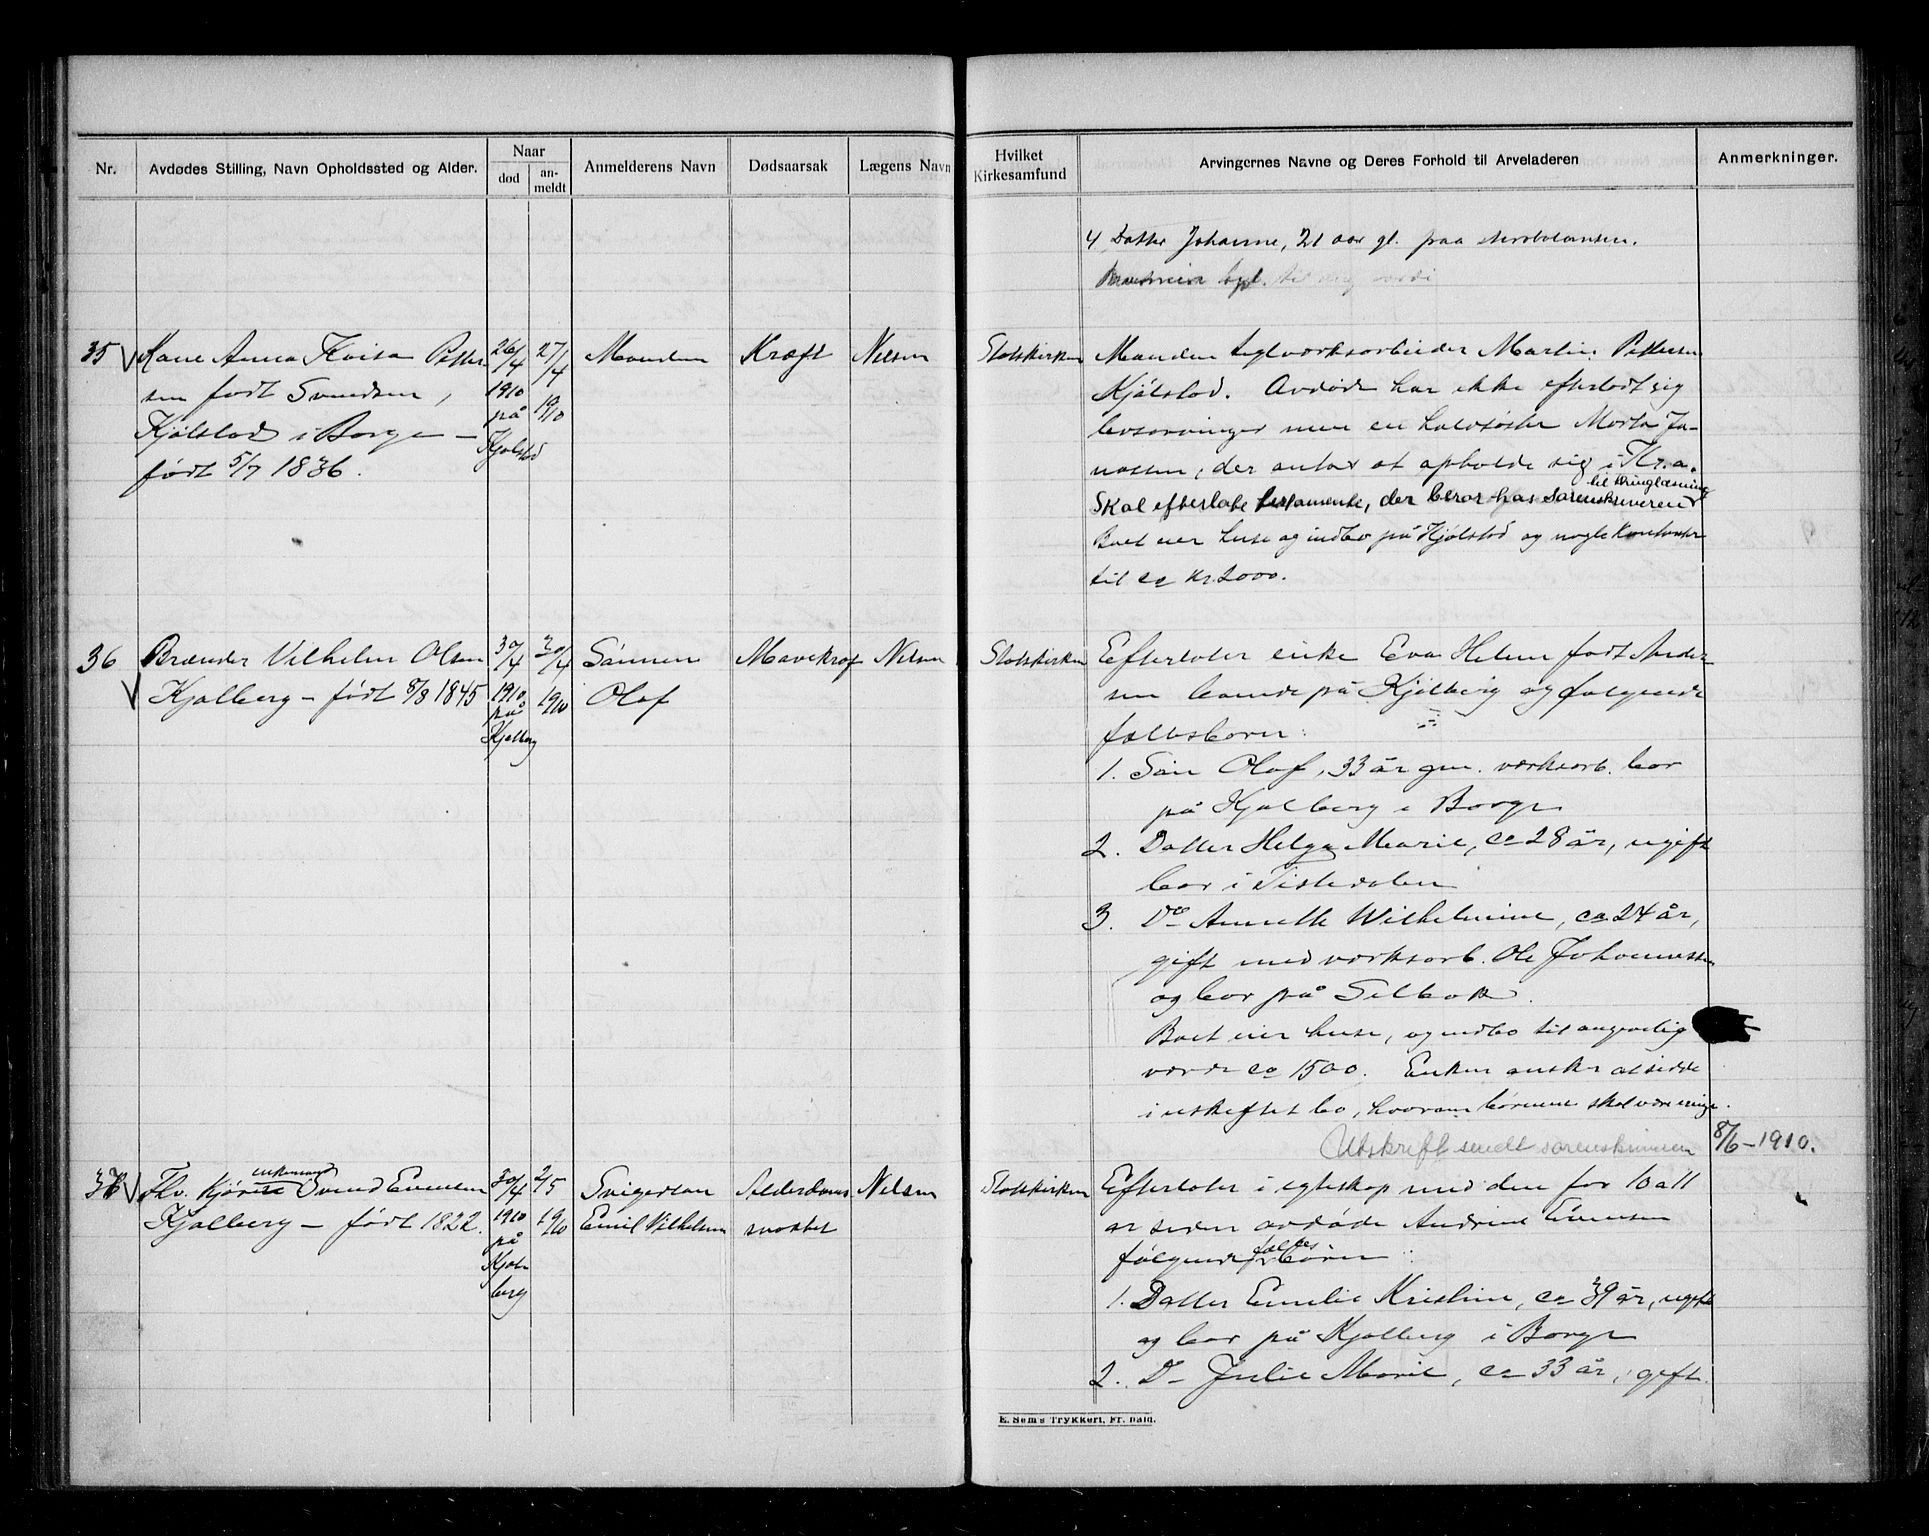 Nr.
Avdødes Stilling, Navn Opholdssted og Alder.
Naar
død
an-
meldt
Anmelderens Navn
Dødsaarsak
Lægens Navn
Hvilket
Kirkesamfund
Arvingernes Navne og Deres Forhold til Arveladeren
Anmerkninger.
4 Datter Johanne, 21 aar gl. paa
35 Kone Anna Lovisa Petter-
sen født Svendsen,
Kjølstad i Borge –
født 5/7 1836.
26/4
1910
på
Kjølstad
27/4
1910
Manden
Kræft
Nilsen
Statskirken
Manden teglværksarbeider Martin Pettersen
Kjølstad. Avdøde har ikke efterladt sig
livsarvinger men en halvsøster Marta Jo-
nassen, der antas at opholde sig i Kr.a.
til tinglæsning
Skal efterlate testamente, der beror hos sorenskriveren
Boet eier huse og indbo på Kjølstad og nogle kontanter
til ca kr. 2000.
36 Brænder Vilhelm Olsen
Kjølberg – født 8/8 1845
30/4
1910
på
Kjølberg
30/4
1910
Sønnen
Olaf
Mavekræft
Nilsen
Statskirken
Efterlater enke Eva Helene født Ander-
sen boende på Kjølberg og følgende
fællesbarn:
1. Søn Olaf, 33 år gm. værksarb. bor
på Kjølberg i Borge
2. Datter Helga Marie, ca 28 år, ugift
bor i Tistedalen
3. Do Annette Wilhelmine, ca 24 år,
gift med værksarb. Ole Johannessen
og bor på Selbak.
Boet eier huse, og indbo til angivelig
værdi ca 1500. Enken ønsker at sidde
i uskiftet bo, hvorom børnene skal være enige.
Utskrift sendt sorenskriveren 8/6 – 1910.
37 Fhv. Kjører enkemand Svend Evensen
Kjølberg – født 1822.
30/4
1910
på
Kjøl-
berg
2/5
1910
Svigersøn
Emil Vilhelmsen
Alderdoms
svakhet
Nilsen
Statskirken
Efterlater i egteskap med den for 10 a 11
år siden avdøde Andrine Evensen
følgende fælles børn:
1. Datter Emilie Kristine, ca 39 år, ugift
og bor på Kjølberg i Borge
2. D– Julie Marie, ca 33 år, gift
E. Sem's Trykkeri, Fr. hald.